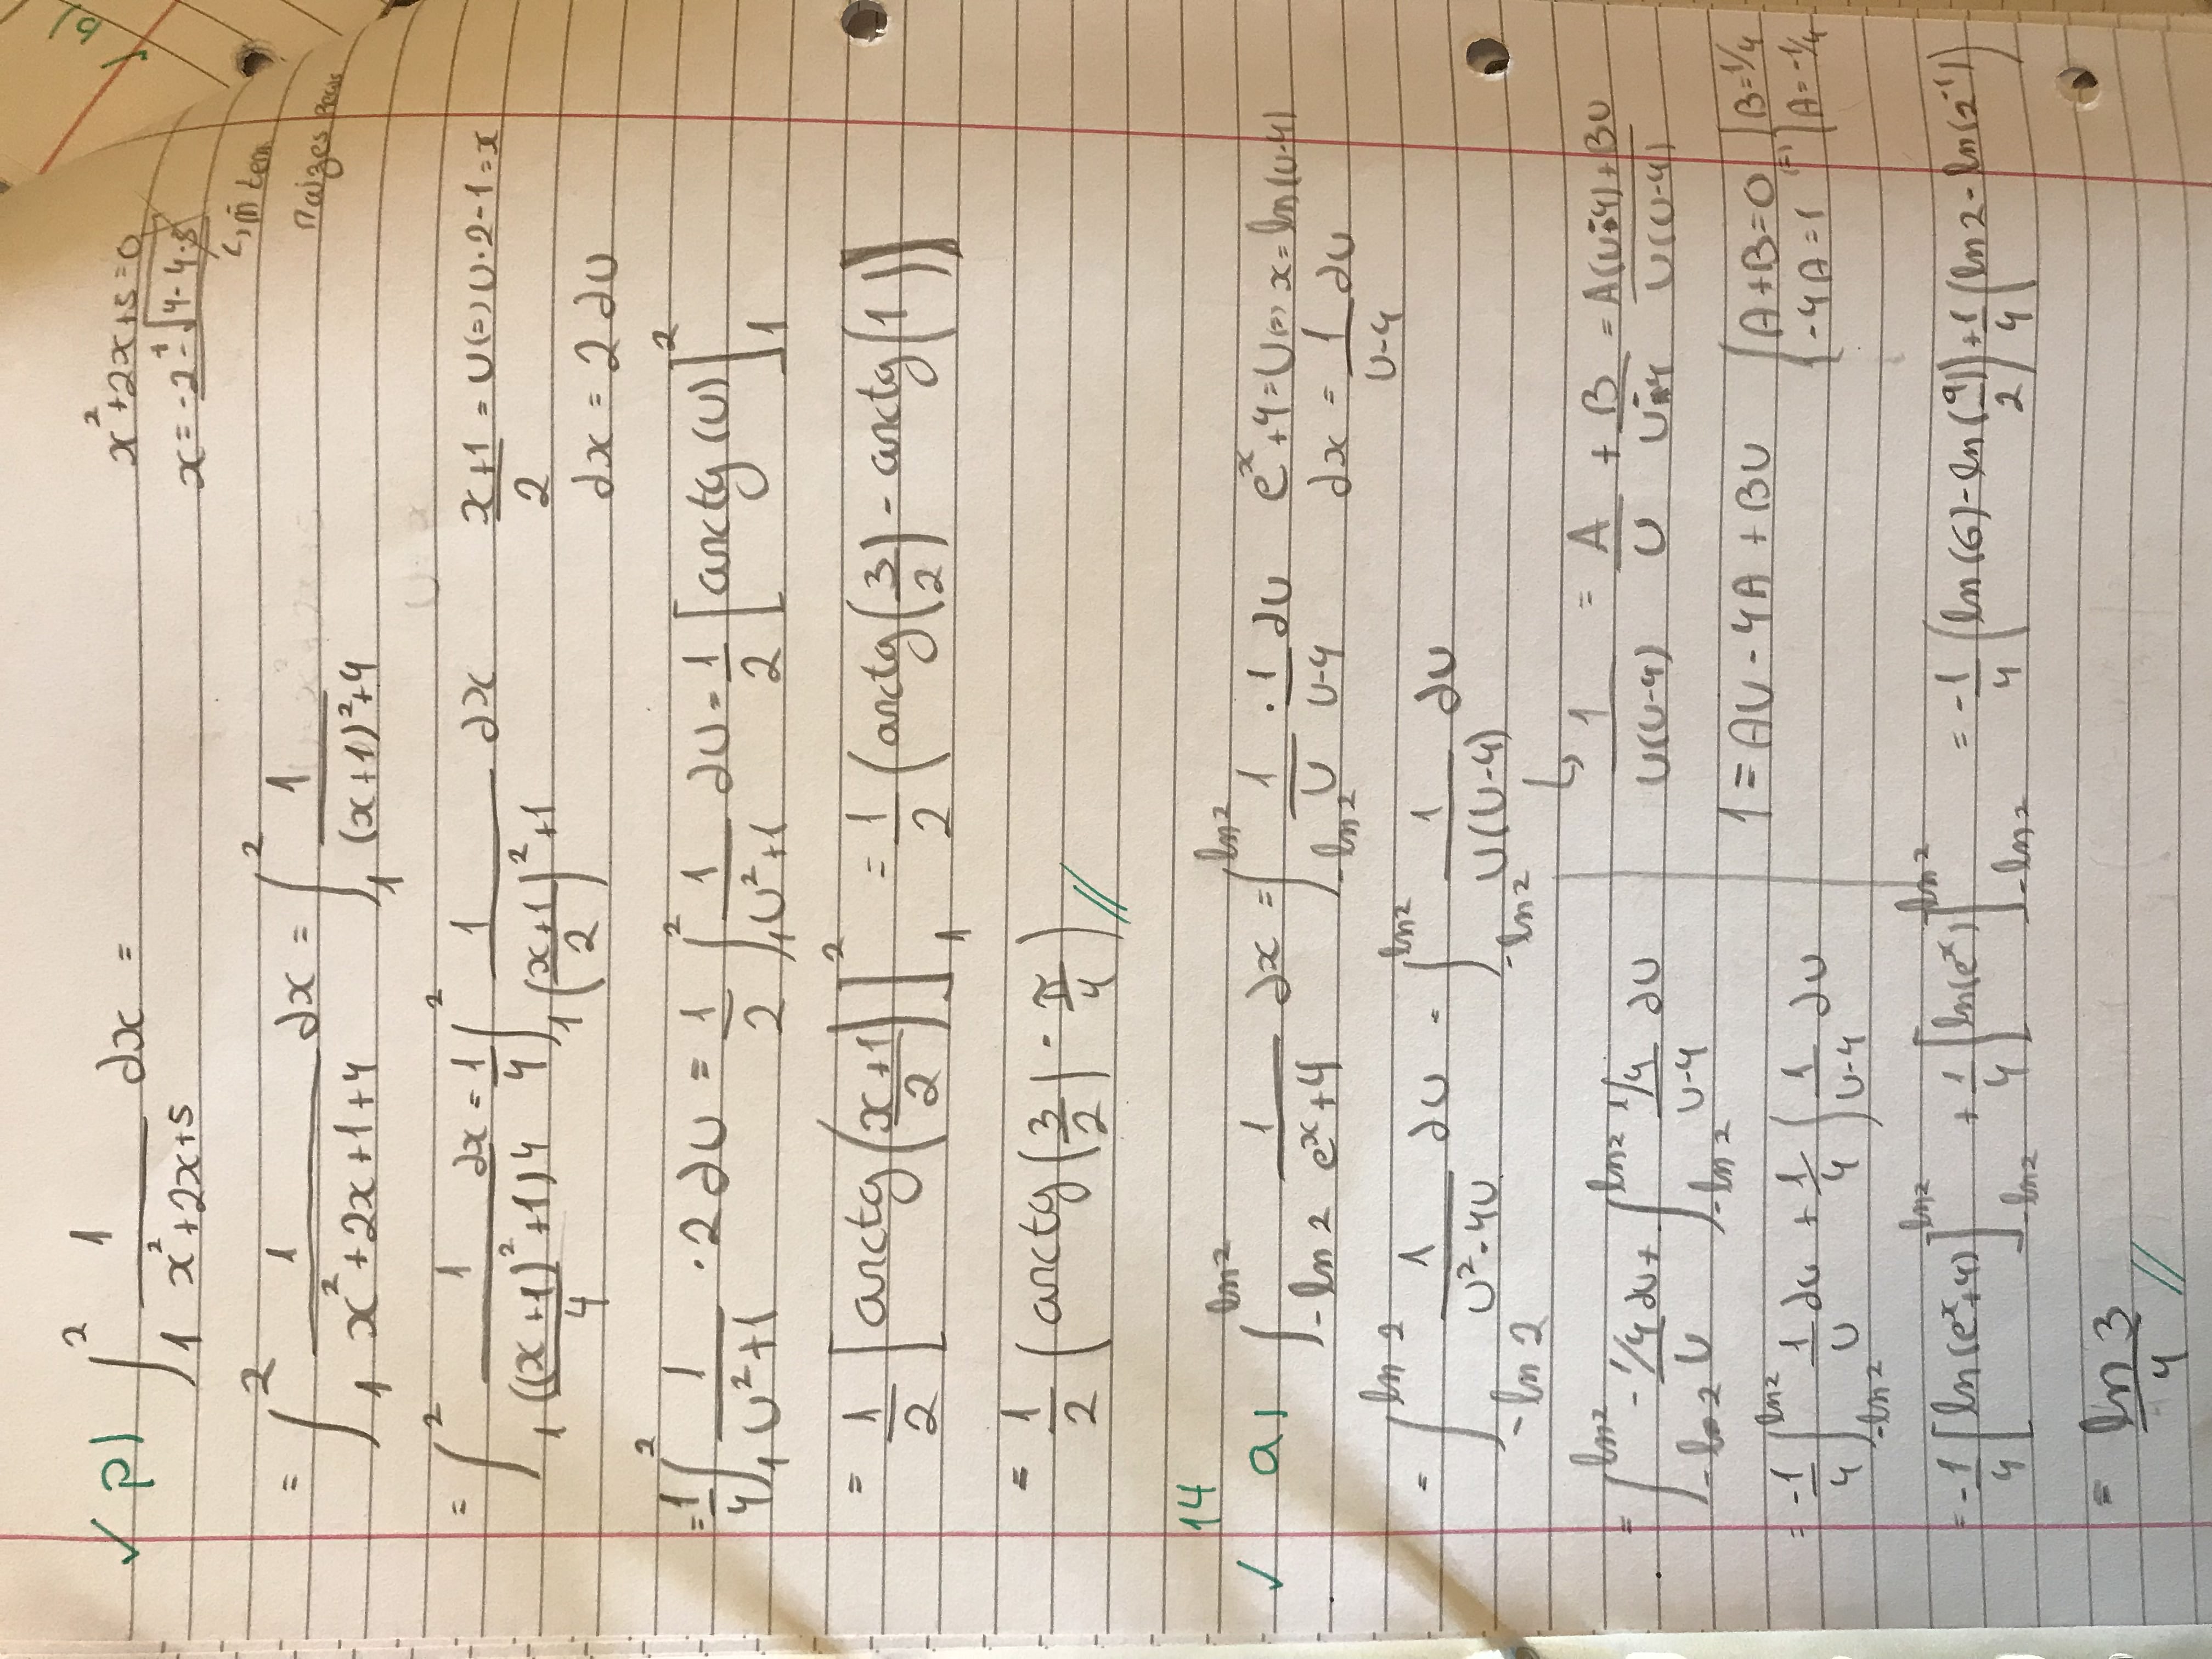 ✓ p) ∫₁² 1/(x²+2x+5) dx =
x²+2x+5=0
x = (-2 ± √(4-4·5))/
↳ ñ tem
raizes reais
= ∫₁² 1/(x²+2x+1+4) dx = ∫₁² 1/((x+1)²+4)
= ∫₁² 1/(((x+1)²/4 +1)4) dx = 1/4 ∫₁² 1/(((x+1)/2)²+1) dx
(x+1)/2 = U (=) U·2-1=x
dx = 2 dU
= 1/4 ∫₁² 1/(U²+1) ·2 dU = 1/2 ∫₁² 1/(U²+1) dU = 1/2 [arctg(U)]₁²
= 1/2 [arctg((x+1)/2)]₁² = 1/2 (arctg(3/2) - arctg(1))
= 1/2 (arctg(3/2) - π/4) //
14
✓ a) ∫_{-ln 2}^{ln 2} 1/(e^x+4) dx = ∫_{-ln 2}^{ln 2} 1/U · 1/(U-4) dU
e^x+4=U (=) x=ln(U-4)
dx = 1/(U-4) dU
= ∫_{-ln 2}^{ln 2} 1/(U²-4U) dU = ∫_{-ln 2}^{ln 2} 1/(U(U-4)) dU
= ∫_{-ln 2}^{ln 2} -(1/4)/U dU + ∫_{-ln 2}^{ln 2} (1/4)/(U-4) dU
↳ 1/(U(U-4)) = A/U + B/(U-4) = (A(U-4)+BU)/(U(U-4))
1 = AU - 4A + BU { A+B=0 { B=1/4
{ -4A=1 (=) { A=-1/4
= -1/4 ∫_{-ln 2}^{ln 2} 1/U dU + 1/4 ∫ 1/(U-4) dU
= -1/4 [ln(e^x+4)]_{-ln 2}^{ln 2} + 1/4 [ln(e^x)]_{-ln 2}^{ln 2} = -1/4 (ln(6) - ln(9/2)) + 1/4 (ln 2 - ln(2⁻¹))
= ln 3/4 //
✓ b)